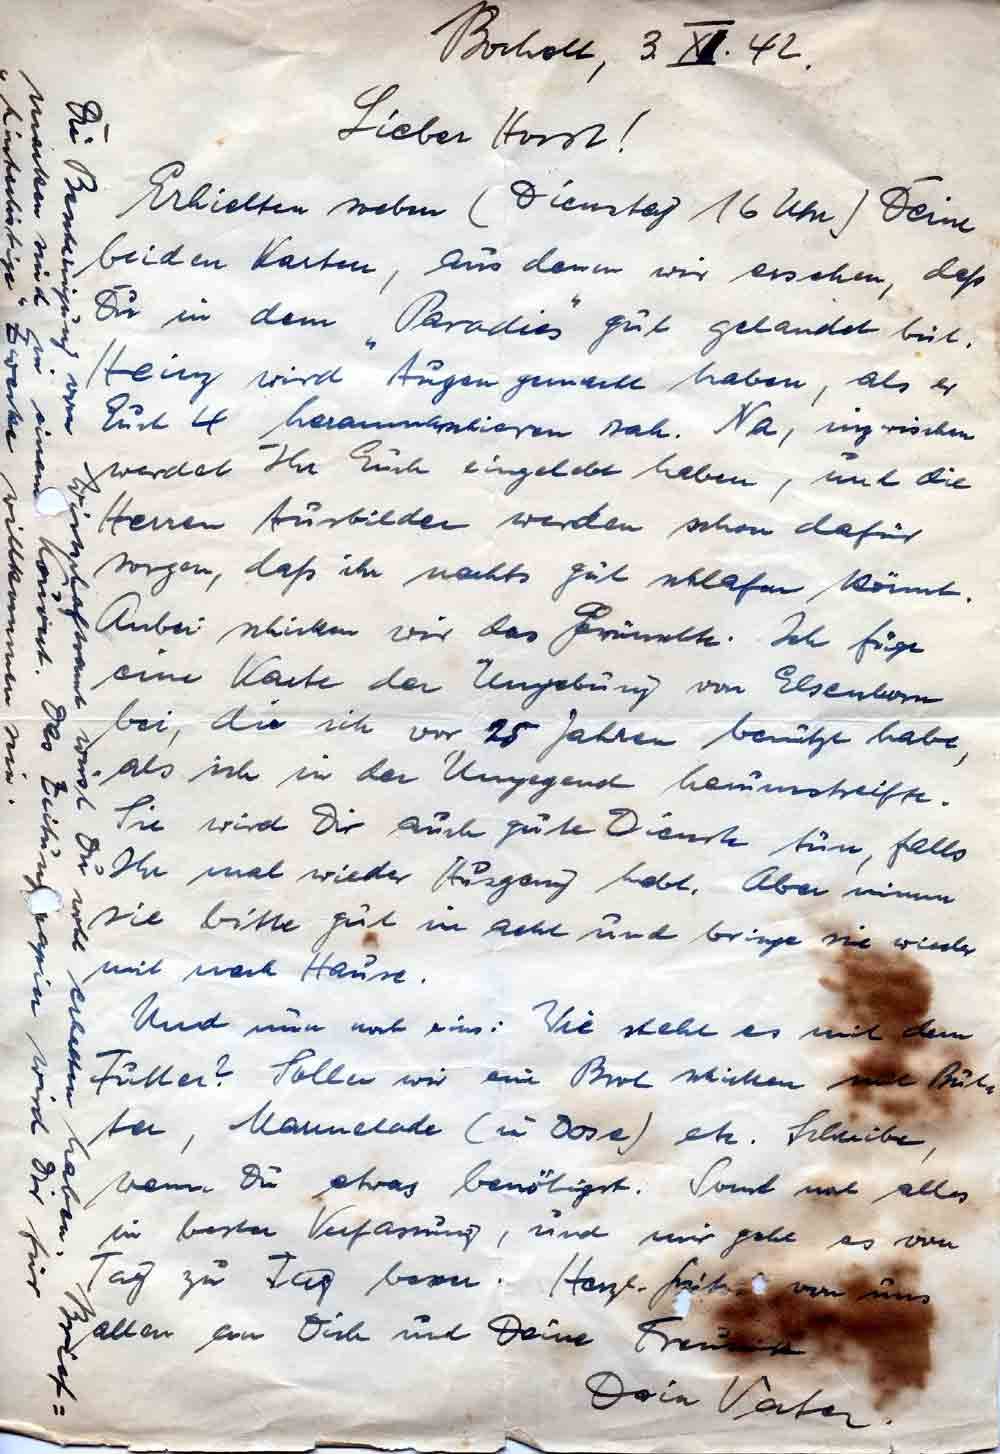 Bocholt, 3. XI. 42.
Lieber Horst!
Erhielten soeben (Dienstag 16 Uhr) Deine
beiden Karten, aus denen wir ersehen, daß
Du in dem „Paradies“ gut gelandet bist.
Heinz wird Augen gemacht haben, als er
Euch 4 heranmarschieren sah. Na, inzwischen
werdet Ihr Euch eingelebt haben, und die
Herren Ausbilder werden schon dafür
sorgen, daß ihr nachts gut schlafen könnt.
Anbei schicken wir das Gewünschte. Ich füge
eine Karte der Umgebung von Elsenborn
bei, die ich vor 25 Jahren benützt habe,
als ich in der Umgegend herumstreifte.
Sie wird Dir auch gute Dienste tun, falls
Ihr mal wieder Ausgang habt. Aber nimm
sie bitte gut in acht und bringe sie wieder
mit nach Hause.
Und nun noch eins: Wie steht es mit dem
Futter? Sollen wir ein Brot schicken mit But-
ter, Marmelade (in Dose) etc. Schreibe,
wenn Du etwas benötigst. Sonst noch alles
in bester Verfassung, und mir geht es von
Tag zu Tag besser. Herzl. von uns
allen an Dich und Deine Freunde
Dein Vater.
Die Bescheinigung vom Wirtschaftsamt wirst Du wohl erhalten haben. Brief=
marken sind in einem Kouvert. Das Zeitungspapier wird Dir für
„hinterlistige“ Zwecke willkommen sein.